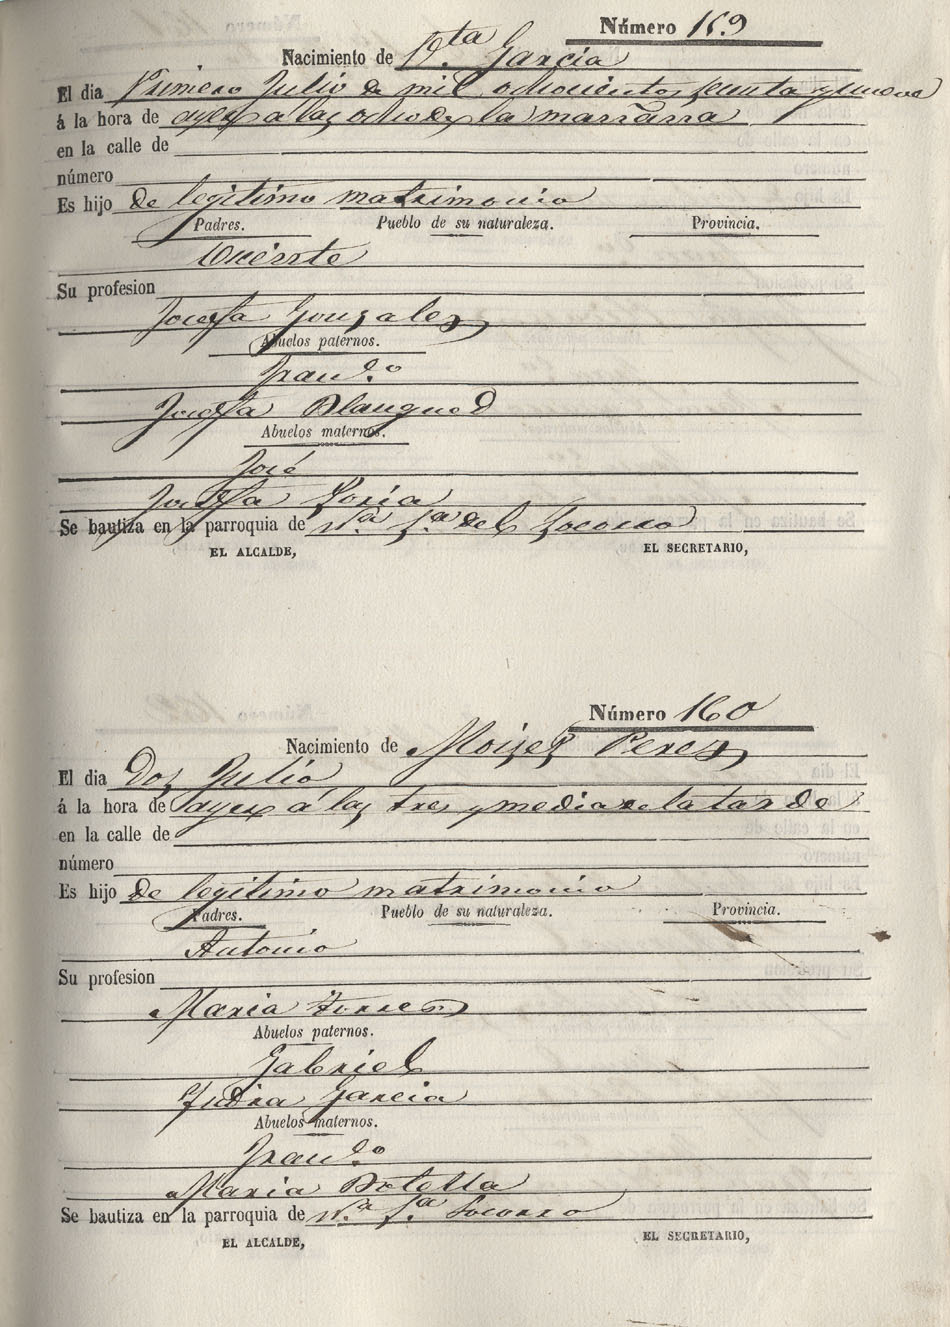 Número 159
Nacimiento de V.ta Garcia
El dia Primero Julio de mil ochocientos setenta y nueve
á la hora de ayer a las ocho de la mañana
en la calle de
número
Es hijo de legitimo matrimonio
Padres. Pueblo de su naturaleza. Provincia.
Vicente
Su profesion
Josefa Gonzalez
Abuelos paternos.
Fran.co
Josefa Blanqued
Abuelos maternos.
José
Josefa Soria
Se bautiza en la parroquia de N.a S.a del Socorro
EL ALCALDE, EL SECRETARIO,
Número 160
Nacimiento de Moises Perez
El dia Dos Julio
á la hora de ayer á las tres y media de la tarde
en la calle de
número
Es hijo de legitimo matrimonio
Padres. Pueblo de su naturaleza. Provincia.
Antonio
Su profesion
Maria Torres
Abuelos paternos.
Gabriel
Garcia
Abuelos maternos.
Fran.co
Maria Botella
Se bautiza en la parroquia de N.a S.a Socorro
EL ALCALDE, EL SECRETARIO,